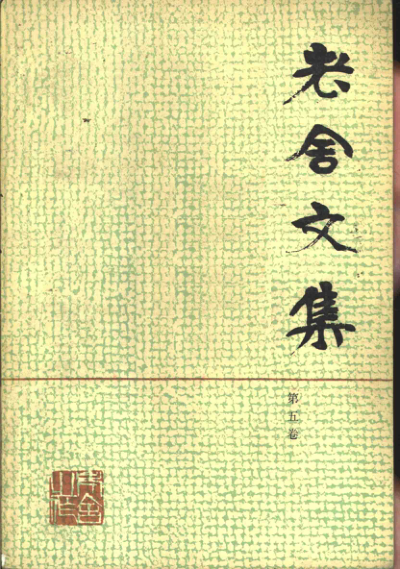 老舍文集
第五卷